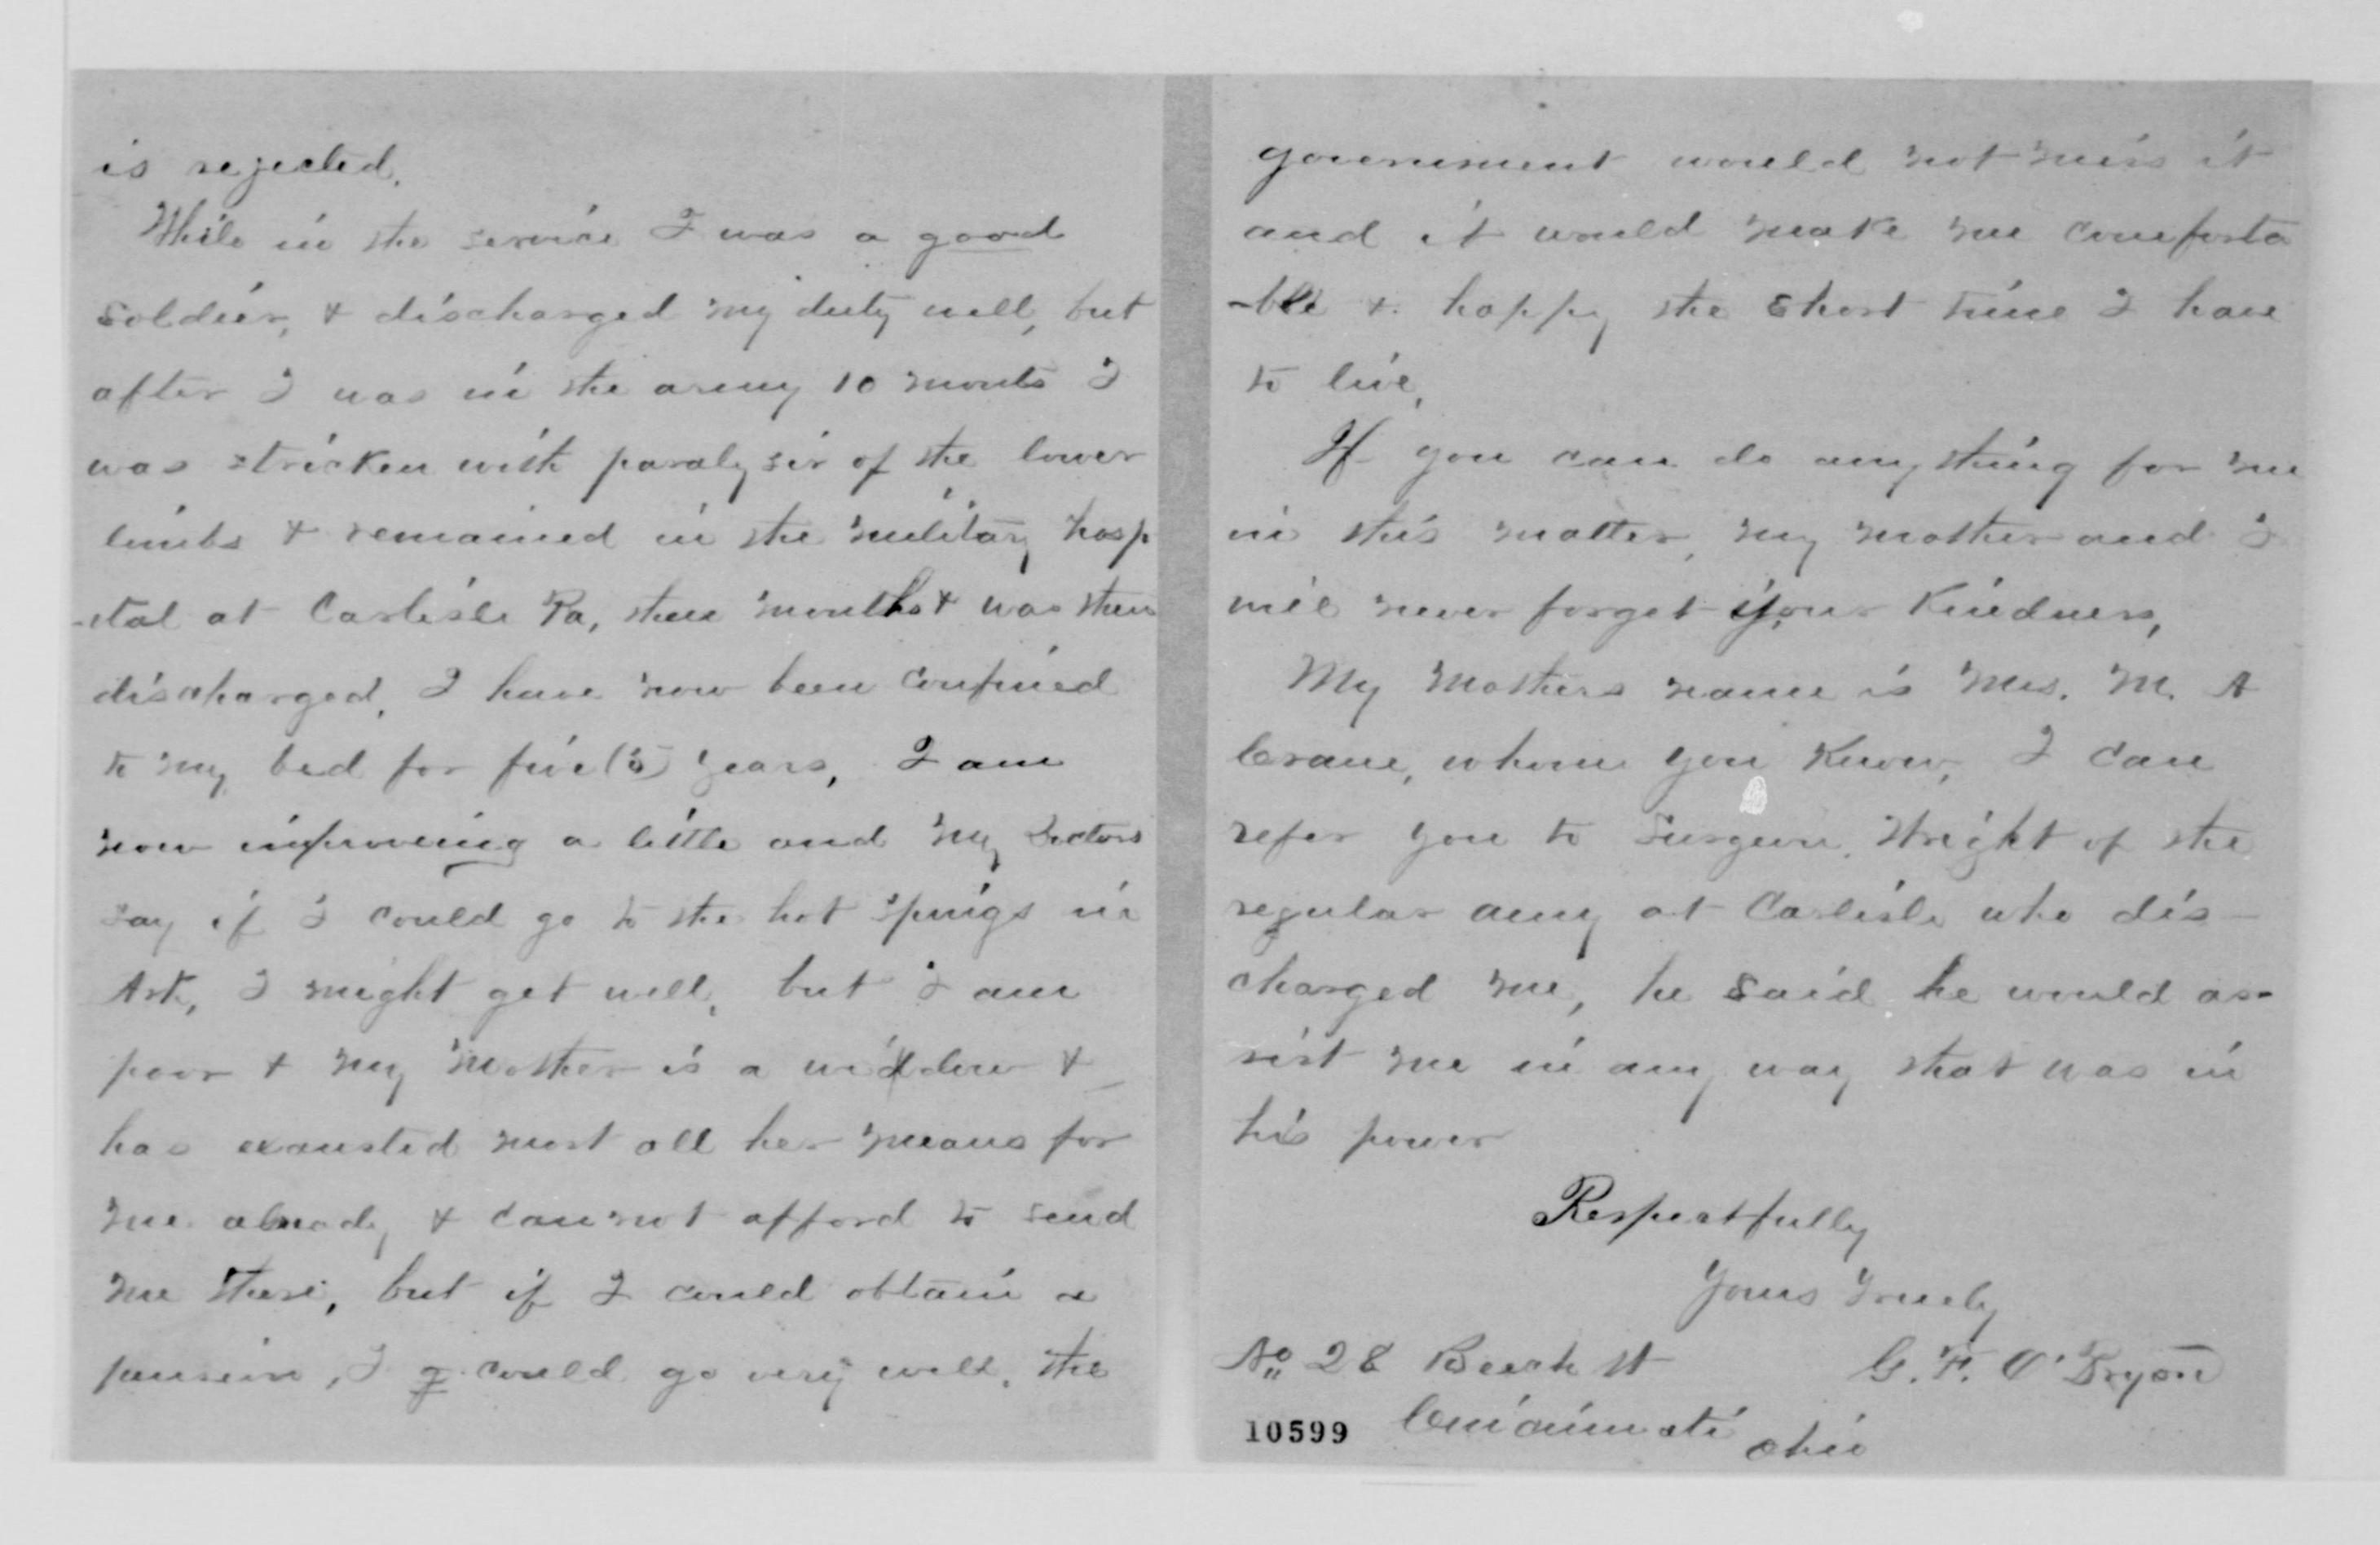 is rejected.
While in the service I was a good
soldier, & discharged my duty well, but
after I was in the army 10 monts I
was stricken with paralysis of the lower
limbs & remained in the military hosp
-ital at Carlisle Pa, three months & was then
discharged. I have now been confined
to my bed for five (5) years, I am
now improveing a little and my doctors
say if I could go to the hot springs in
Ark, I might get well, but I am
poor & my mother is a widdow &
has exausted most all her means for
me already & can not afford to send
me there, but if I could obtain a
pension, I g could go very well, the
government would not miss it
and it would make me comforta
-ble & happy the short time I have
to live,
If you can do any thing for me
in this matter, my mother and I
will never forget your kindness,
My mothers name is Mrs. M. A
Crane, whom you know, I can
refer you to Surgeon Wright of the
regular army at Carlisle who dis-
charged me, he said he would as-
sist me in any way that was in
his power
Respectfully
Yours Truely
No 28 Beech st G. F. O'Bryon
10599 Cincinnati Ohio